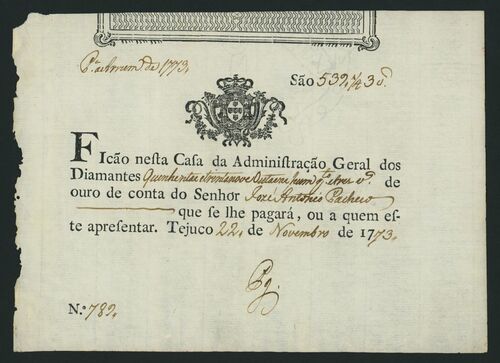 de 1773,
São 539,1/4 3 8.ª
FIcão neſta Caſa da Adminiſtração Geral dos
Diamantes Quinhentas e trinta nove Oitavas hum q.to e tres v.s de
ouro de conta do Senhor José Antonio Pacheco
que ſe lhe pagará, ou a quem eſ-
te apreſentar. Tejuco 22, de Novembro de 1773,
Pg.
N.º 789,